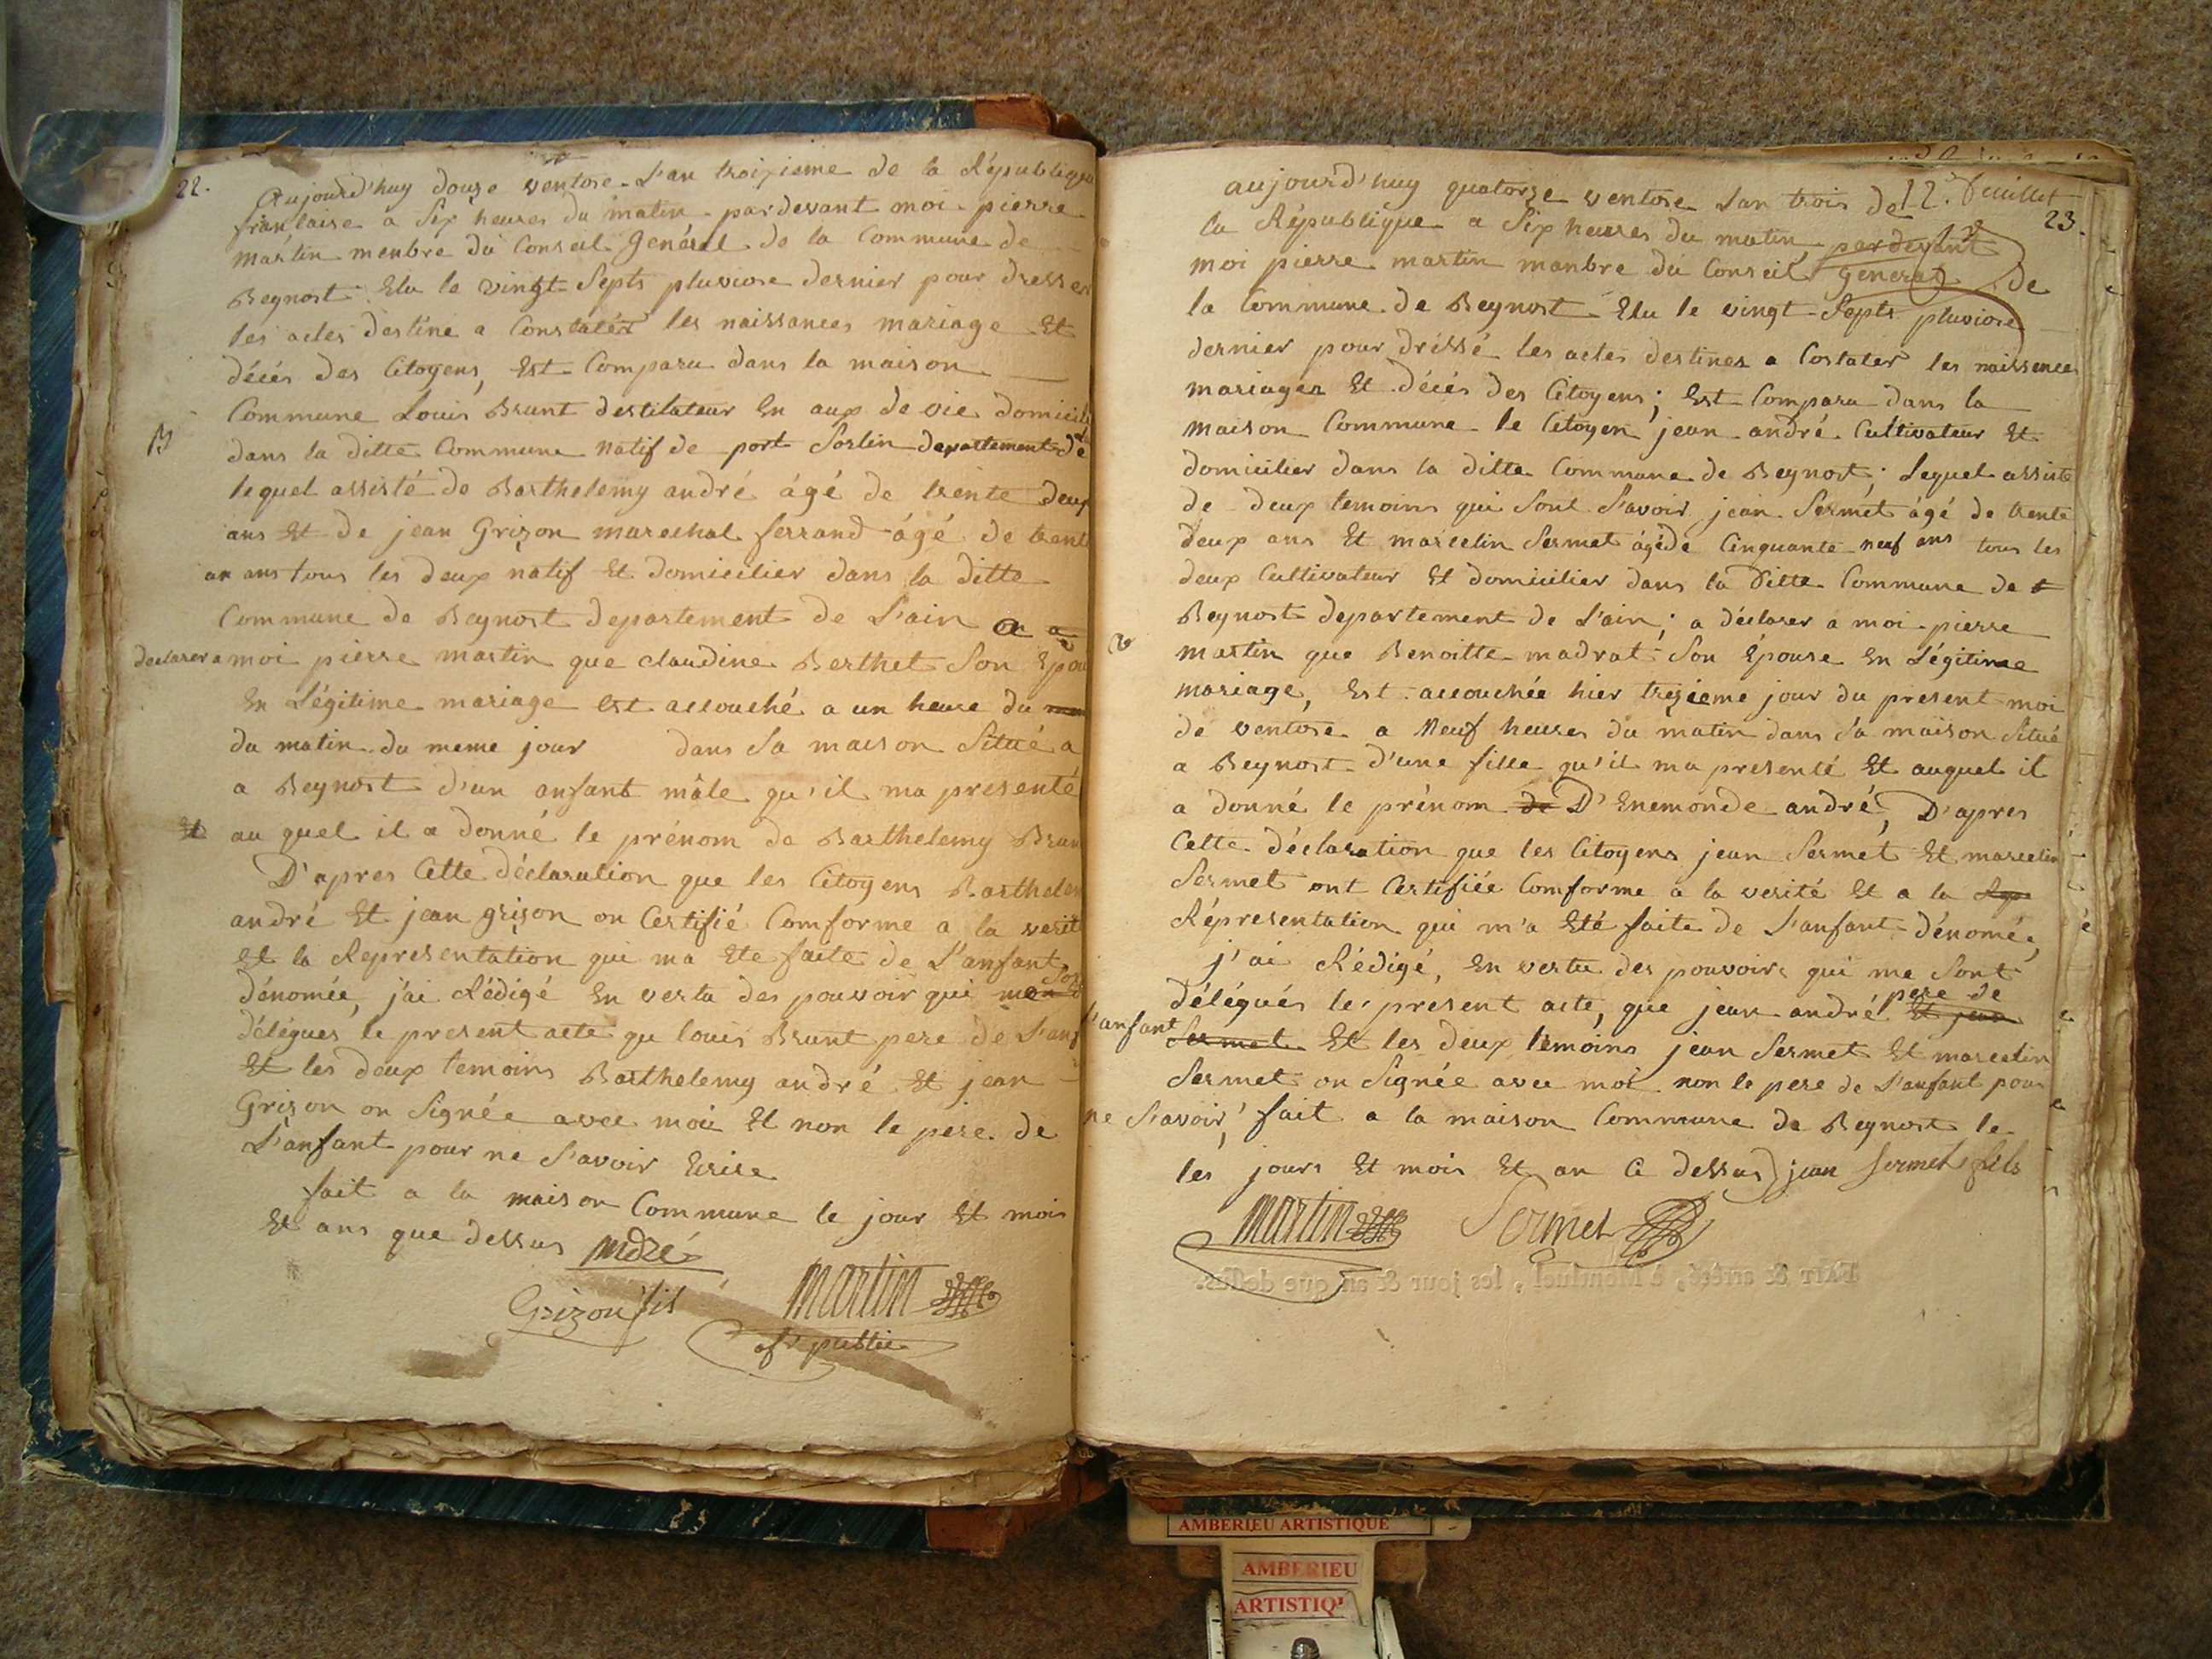 22.
Aujourd'huy douze ventose L'an troizieme de la Républiqu
franlaise a Six heures du matin pardevant moi pierre
martin menbre du Conseil Genéral de la Commune de
Beynost Elu le vingt Septs pluviose dernier pour dresser
les actes destine a Constatér les naissances mariage Et
décés des Citoyens, Est Comparu dans la maison
Commune Louis Brunt destilateur En aux de vie domicili
B
dans la ditte Commune natif de port Sorlin departement de
lequel assisté de Barthelemy andré ágé de trente deux
ans Et de jean Grizon marechal ferrand ágé de trent
un ans tous les deux natif Et domicilier dans la ditte
Commune de Beynost departement de L'ain a
declarer a moi pierre martin que claudine Berthet Son Epou
En Légitime mariage est accouché a un heure du
du matin du meme jour dans Sa maison Situé a
a Beynost d'un anfant mâle qu'il ma presenté
Et au quel il a donné le prénom de Barthelemy Brun
D'apres Cette déclaration que les Citoyens Barthelem
andré Et jean grizon on Certifié Comforme a la verit
et la Representation qui ma Ete faite de L'anfant
dénomée, j'ai Rédigé En vertu des pouvoir qui
délégues le present acte qu louis Brunt pere de L'anf
Et les deux temoins Barthelemy andré Et jean
Grizon on Signée avec moi Et non le pere de
L'anfant pour ne Savoir Ecrire
fait a la maison Commune le jour Et mois
Et ans que dessus andré
Grizon fils martin
of. public
12. feuillet
23.
aujourd'huy quatorze ventose Lan trois de
la République a Six heures du matin pardevant
moi pierre martin manbre du Conseil General de
la Commune de Beynost Elu le vingt Septs pluviose
dernier pour dréssé les actes destines a Costater les naissences
mariages Et décés des Citoyens; Est Comparu dans la
maison Commune le Citoyen jean andré Cultivateur Et
domicilier dans la ditte Commune de Beynost; Lequel assisté
de deux temoins qui Sont Savoir jean Sermét ágé de trente
deux ans Et marcelin Sermet ágé de Cinquante neuf ans tous les
deux Cultivateur Et domicilier dans la Ditte Commune de
Beynost departement de L'ain; a déclarer a moi pierre
martin que Benoitte madrat Son Épouse En Légitime
mariage, Est accouchée hier trezieme jour du present moi
de ventose a Neuf heures du matin dans Sa maison Situé
a Beynost D'une fille qu'il ma presenté Et auquel il
a donné le prénom de D'Enemonde andré, D'apres
Cette déclaration que les Citoyens jean Sermét Et marcelin
Sermet ont Certifiée Comforme a la verité Et a la Rep
Répresentation qui m'a Eté faite de L'anfant dénomée,
j'ai Rédigé, En vertu des pouvoirs qui me Sont
délégués le present acte, que jean andré Et jean pere de
l'anfant Sermet Et les deux temoins jean Sermet Et marcelin
Sermet on Signée avec moi non le pere de L'anfant pour
ne Savoir, fait a la maison Commune de Beynost le
les jours Et mois Et an Ci dessus jean sermet fils
martin Sermet
FAIT & arrêté, à Montluel, les jour & an que dessus.
AMBERIEU ARTISTIQUE
AMBERIEU
ARTISTIQ